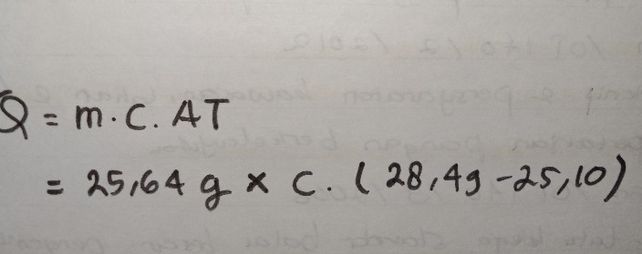 Q = m.C.AT
= 25,64 g x C. (28,49-25,10)